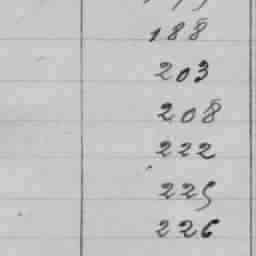 188
203
208
222
225
226